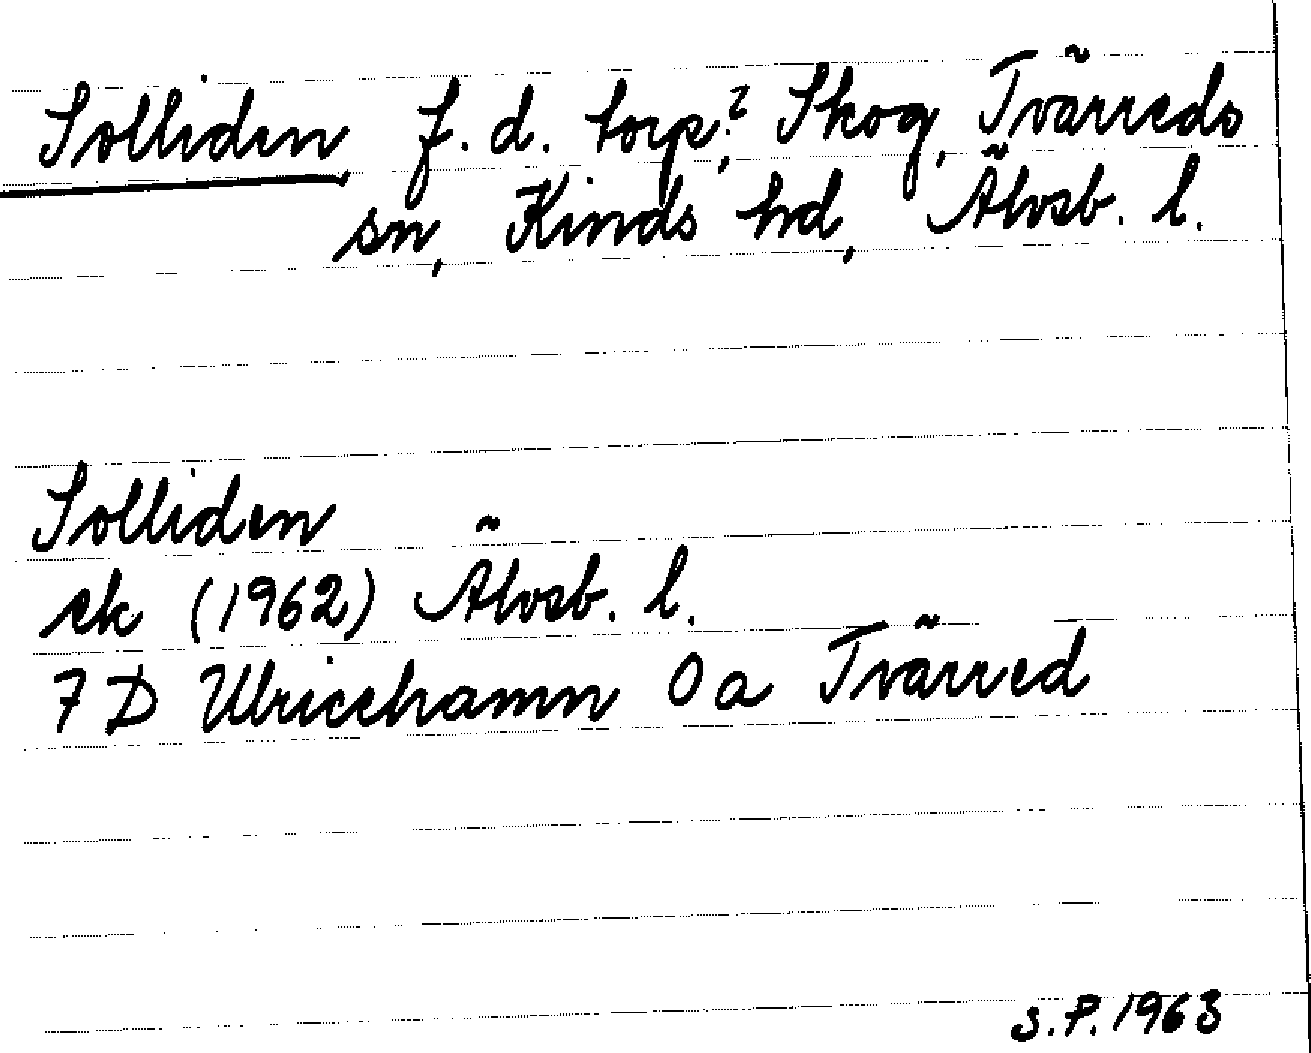 Solliden, f.d. torp?, Skog, Tvärreds
sn, Kinds hd, Älvsb. l.
Solliden
ek (1962) Älvsb. l.
7 D Ulricehamn 0 a Tvärred
S.P. 1963